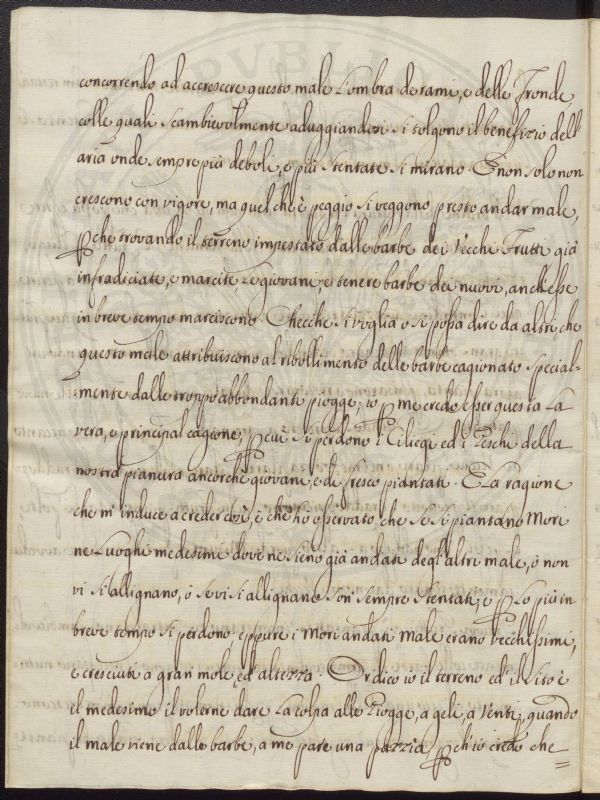 concorrendo ad accrescere questo male l'ombra de rami, e delle Fronde,
colle quali scambievolmente aduggiandosi si tolgono il benefizio dell'
aria onde sempre più deboli, e più stentate si mirano. E non solo non
crescono con vigore, ma quel che è peggio si veggono presto andar male,
pche trovando il terreno impestato dalle barbe dei Vecchi Frutti già
infradiciate, e marcite, le giovani, e tenere barbe dei nuovi, anch'esse
in breve tempo marciscono. Checche si voglia o si possa dire da altri, che
questo male attribuiscono al ribollimento delle barbe cagionato special=
mente dalle troppo abbondanti piogge; io p me credo esser questa la
vera, e principal cagione, p cui si perdono i Ciliegi ed i Peschi della
nostra pianura ancorchè giovani, e di fresco piantati. E la ragione
che m'induce a creder così, è che ho osservato che se si piantano Mori
ne Luoghi medesimi dove ne sieno già andati degl'altri male, ò non
vi si allignano, ò se vi si allignano son sempre stentati, e p lo più in
breve tempo si perdono. eppure i Mori andati male erano vecchissimi,
e cresciuti a gran mole ed altezza. Or dico io il terreno ed il sito è
il medesimo il volerne dare la colpa alle Piogge, a geli, a Venti, quando
il male viene dalle barbe, a me pare una pazzia pch'io credo che